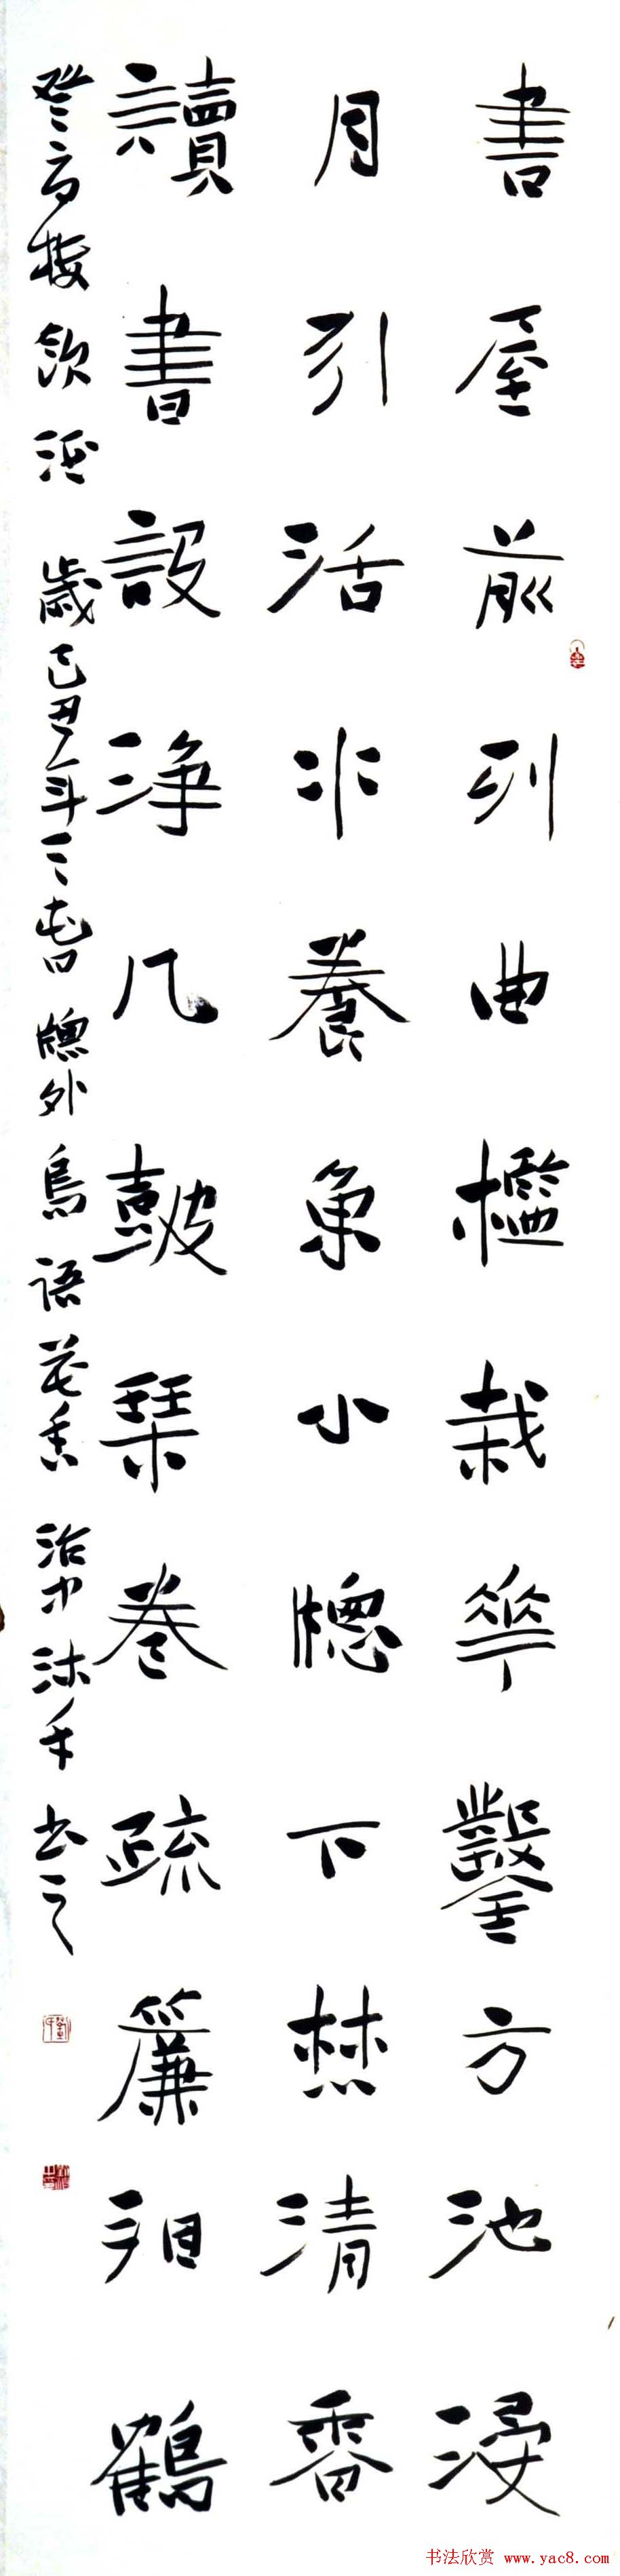 書屋前列曲檻栽華鑿方池浸
月引活水養魚小牕下焚清香
讀書設淨几皷琴卷疏簾看鶴
登高樓飲酒歲己丑年三旾牕外鳥語花香沐手書之
书法欣赏 www.yac8.com